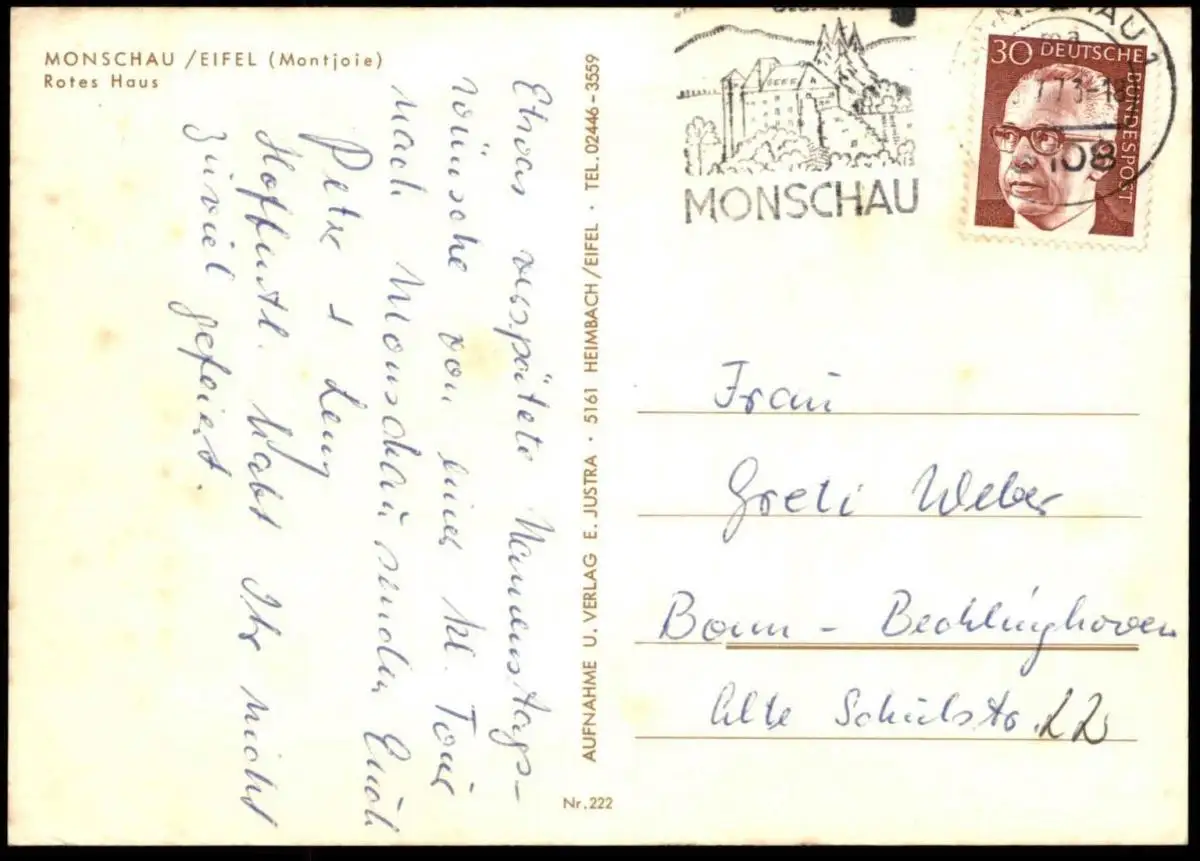 MONSCHAU /EIFEL (Montjoie)
Rotes Haus
Etwas verspätete Namenstags-
wünsche von einer kl. Tour
nach Monschau senden Euch
Petra +
Hoffentl. habt Ihr nicht
zuviel gefeiert.
AUFNAHME U. VERLAG E. JUSTRA · 5161 HEIMBACH/EIFEL · TEL. 02446-3559
Nr. 222
MONSCHAU
30 DEUTSCHE BUNDESPOST
Frau
Greti Weber
Bonn - Bechlinghoven
Alte Schulstr. 22